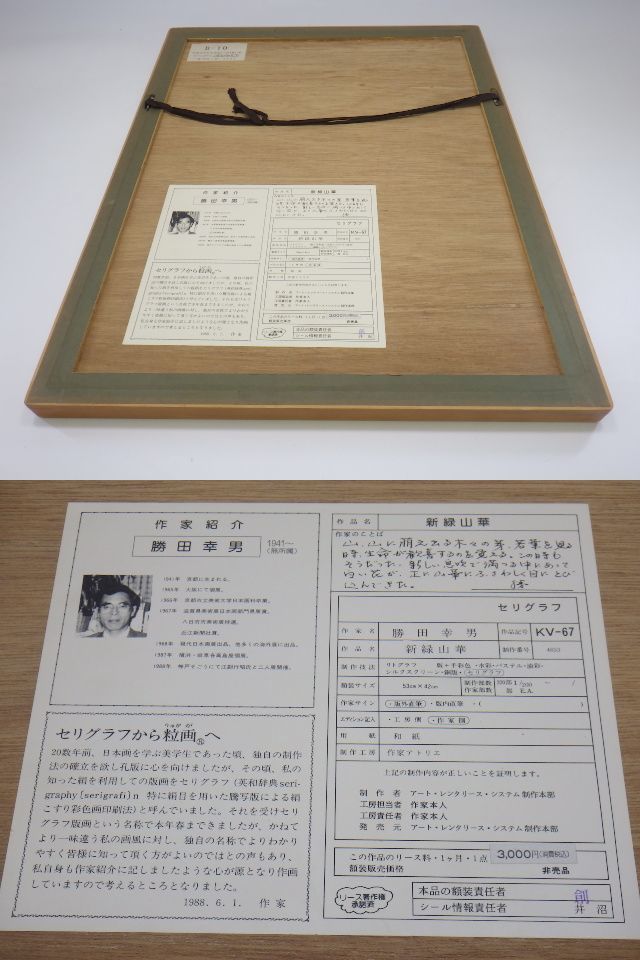 B-10
作家紹介
勝田幸男
1941〜
(無所属)
1941年 京都に生まれる。
1965年 大阪にて個展。
1966年 京都市立美術大学日本画科卒業。
1967年 滋賀県美術展日本画部門県展賞。
八日市市美術展特選。
近江新聞社賞。
1968年 現代日本画展出品、他多くの海外展に出品。
1987年 横浜・岐阜各高島屋個展。
1988年 神戸そごうにて江副行昭氏と二人展開催。
セリグラフから粒画へ
20数年前、日本画を学ぶ美学生であった頃、独自の制作
法の確立を欲し孔版に心を向けましたが、その頃、私の
知った絹を利用しての版画をセリグラフ(英和辞典seri-
graphy[serigrafi]n 特に絹目を用いた騰写版による絹
こすり彩色画印刷法)と呼んでいました。それを受けセリ
グラフ版画という名称で本年春まできましたが、かねて
より一味違う私の画風に対し、独自の名称でよりわかり
やすく皆様に知って頂く方がよいのではとの声もあり、
私自身も作家紹介に記しましたような心が源となり作画
していますので考えるところとなりました。
1988.6.1. 作家
作品名 新緑山華
作家のことば
山、山に萌え出る木々の芽、若葉を見る
時、生命が歓喜するのを覚える。この時も
そうだった。新しい息吹で満つる中にあって
白い花が、正に山華にふさわしく目にとび
込んできた。
セリグラフ
作家名 勝田幸男 作品記号 KV-67
作品名 新緑山華 制作番号
制作技法 リトグラフ 版+手彩色・水彩・パステル・油彩・
シルクスクリーン・銅版・(セリグラフ)
額装サイズ 53cm×42cm 制作部数 作家部数
作家サイン ・版外直筆・版内直筆・( )
エディション記入 ・工房側 ・作家側
用紙 和紙
制作工房 作家アトリエ
上記の制作内容が正しいことを証明します。
制作者 アート・レンタリース・システム制作部
工房担当者 作家本人
工房責任者 作家本人
発売元 アート・レンタリース・システム制作部
この作品のリース料・1ヶ月・1点 3,000円(消費税込)
額装販売価格 非売品
リース著作権
承諾済
本品の額装責任者 創
シール情報責任者 井沼